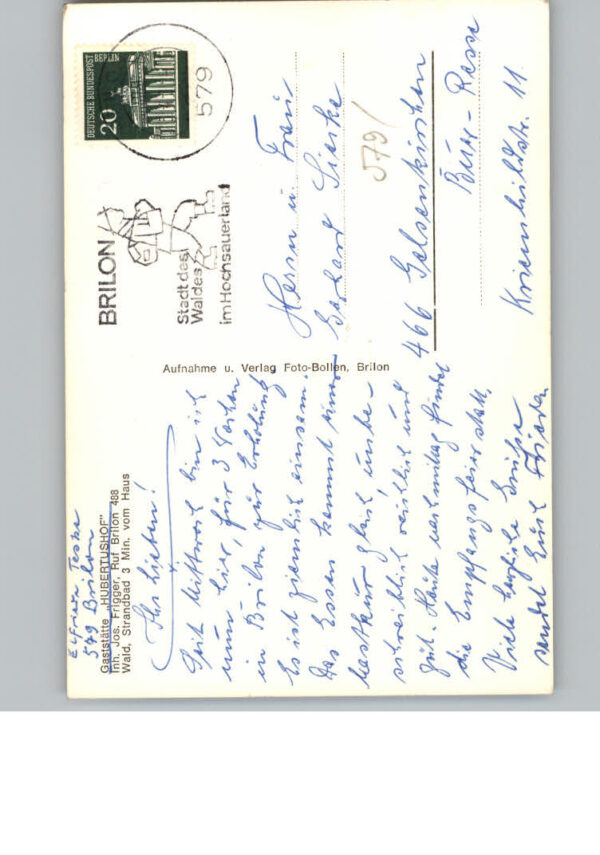 Elfriede Teske
549 Brilon
Gaststätte „HUBERTUSHOF"
Inh. Jos. Frigger, Ruf Brilon 488
Wald, Strandbad 3 Min. vom Haus
Ihr Lieben!
Seit Mittwoch bin ich
nun hier, für 3 Wochen
in Brilon zur Erholung.
Es ist ziemlich einsam.
Das Essen kommt einer
gleich, unbe-
schreiblich reichlich und
gut. Heute nachmittag findet
die Empfangsfeier statt.
Viele herzliche Grüße
sendet Euch
Aufnahme u. Verlag Foto-Bollen, Brilon
BRILON
Stadt des
Waldes
im Hochsauerland
579
DEUTSCHE BUNDESPOST BERLIN
20
Herrn u. Frau
Gerhard
579/
466 Gelsenkirchen
Buer-Resse
Kriemhildstr. 11